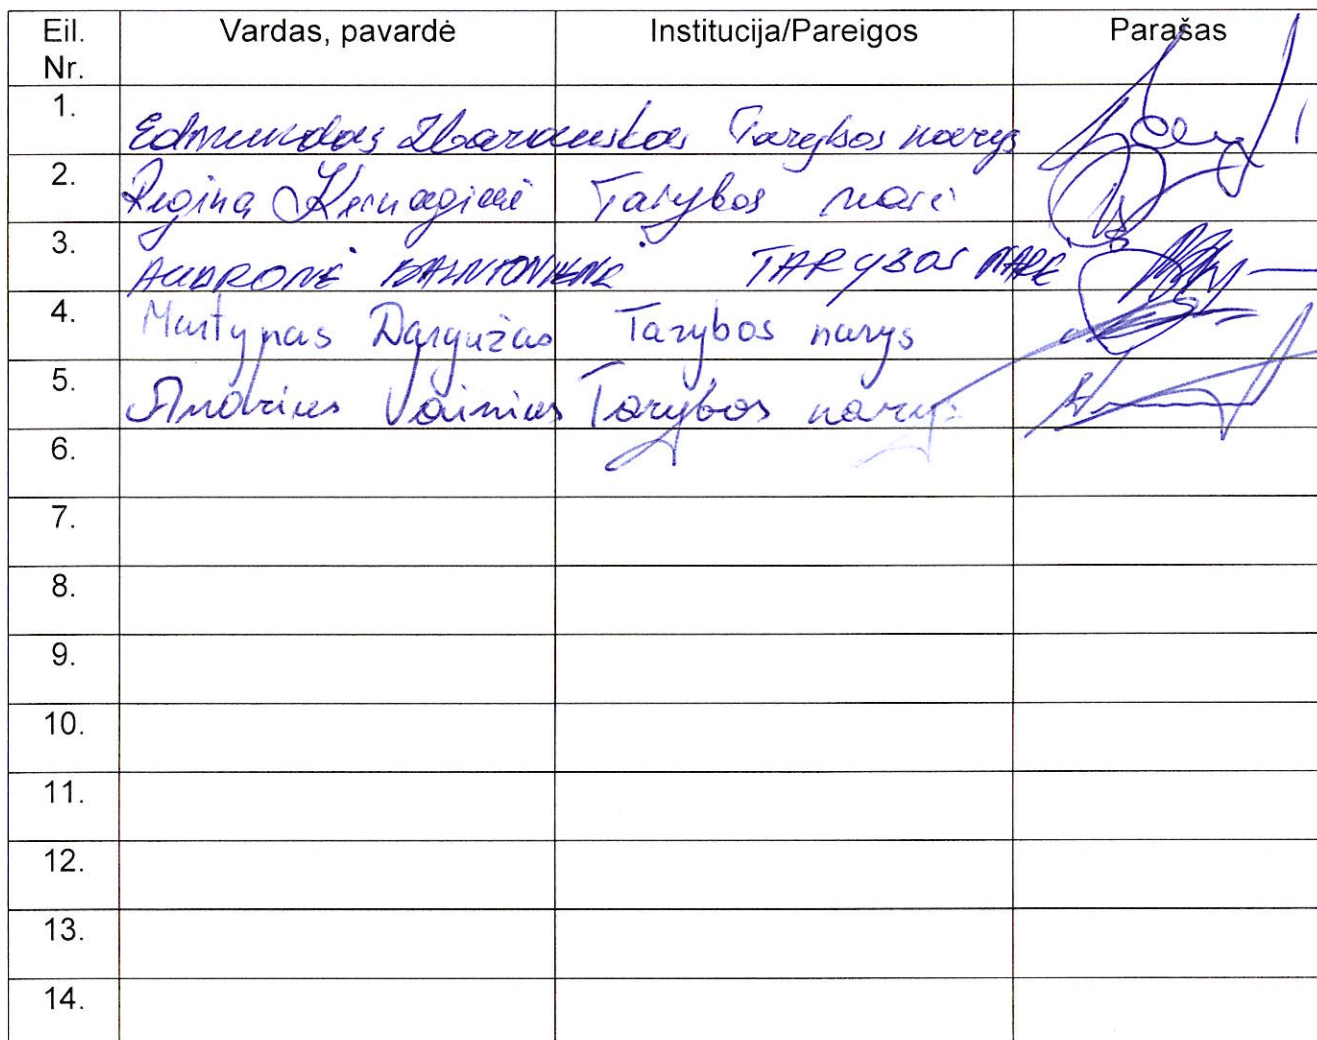 Eil. Nr. Vardas, pavardė Institucija/Pareigos Parašas
1. Edmundas Tarybos narys
2. Regina Tarybos narė
3. AUDRONĖ TARYBOS NARĖ
4. Martynas Dargužas Tarybos narys
5. Andrius Vainius Tarybos narys
6.
7.
8.
9.
10.
11.
12.
13.
14.